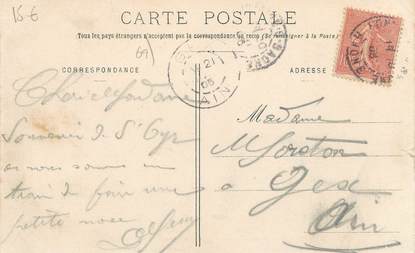 15€
CARTE POSTALE
Tous les pays étrangers n'acceptent pas la correspondance au recto (se renseigner à la Poste)
69
CORRESPONDANCE
ADRESSE
21
05
AIN
Chère Madame
Souvenir de St Cyr
où nous sommes en
train de faire une
petite noce
Madame
à Gex
Ain